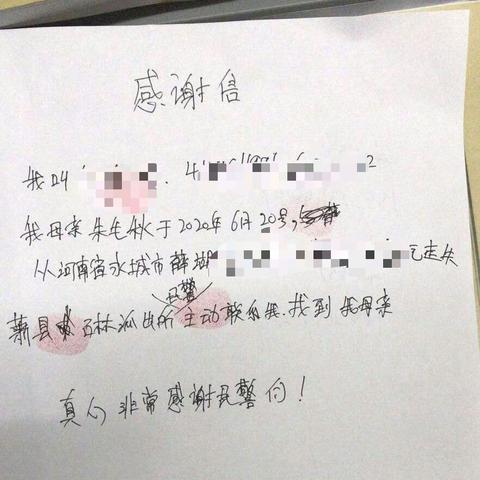 感谢信
我叫 4 2
我母亲朱毛秋于2020年6月20号,
从河南省永城市薛湖 走失
民警
萧县 石林派出所主动联系我.找到我母亲
真心非常感谢民警们!